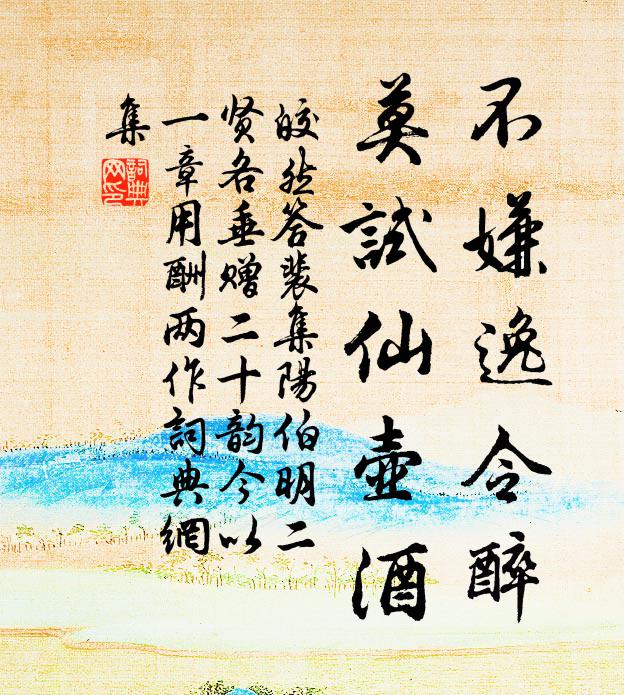 不嫌逸令醉
莫試仙壺酒
皎然答裴集陽伯明二
贤各垂赠二十韵今以
一章用酬两作詞典網
集
詞典
网印